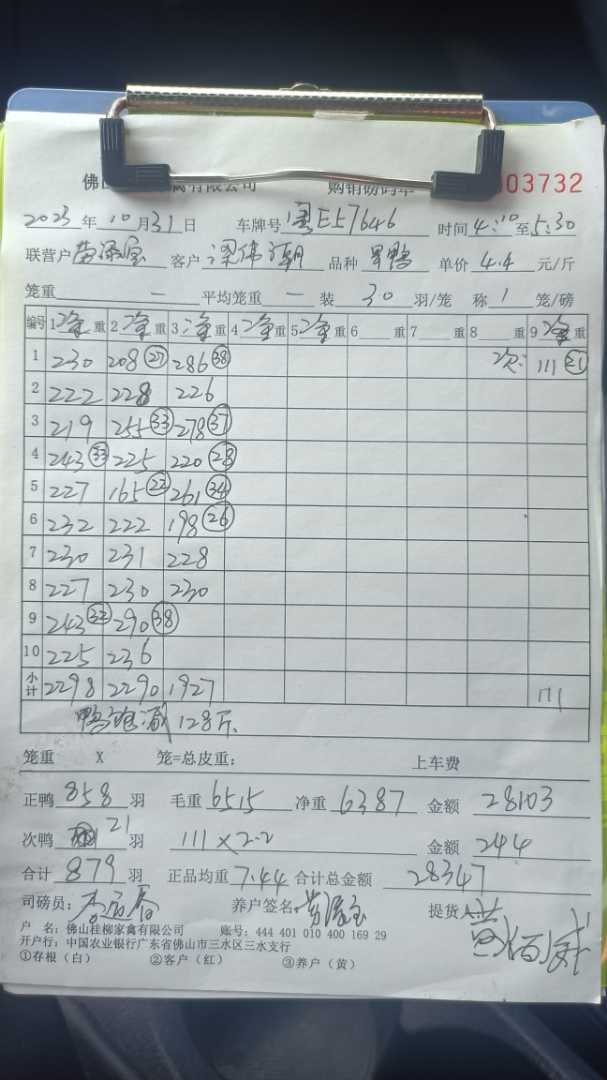 佛山 禽有限公司 购销磅码单 03732
2023年10月31日 车牌号 粤E57646 时间4:10至5:30
联营户 客户 梁伟潮 品种 单价 4.4 元/斤
笼重 — 平均笼重 — 装 30 羽/笼 称 1 笼/磅
编号 1净重 2净重 3净重 4净重 5净重 6 重 7 重 8 重 9净重
1 230 208 (27) 286 (38) 次: 111 (21)
2 222 228 226
3 219 255 (33) 278 (37)
4 243 (33) 225 220 (28)
5 227 165 (22) 261 (34)
6 232 222 198 (26)
7 230 231 228
8 227 230 230
9 243 (32) 290 (38)
10 225 236
小计 2298 2290 1927 111
鸭 减 128斤
笼重 X 笼=总皮重: 上车费
正鸭 858 羽 毛重 6515 净重 6387 金额 28103
次鸭 21 羽 111×2.2 金额 244
合计 879 羽 正品均重 7.44 合计总金额 28347
司磅员: 养户签名: 提货人:
户 名: 佛山桂柳家禽有限公司 账号: 444 401 010 400 169 29
开户行: 中国农业银行广东省佛山市三水区三水支行
①存根(白) ②客户(红) ③养户(黄)